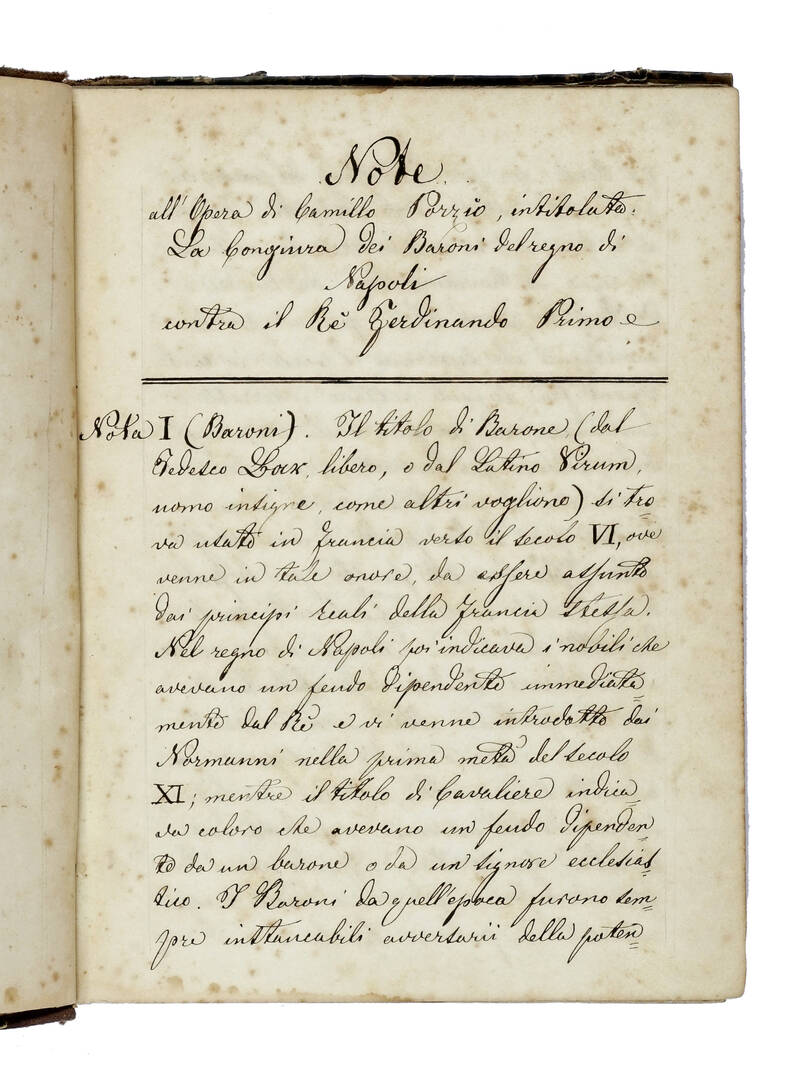 Note
all'Opera di Camillo Porzio, intitolata:
La Congiura dei Baroni del regno di
Napoli
contra il Rè Ferdinando Primo e
Nota I (Baroni). Il titolo di Barone (dal
Tedesco libero, o dal Latino Virum,
uomo insigne, come altri vogliono) si tro=
va usato in Francia verso il secolo VI, ove
venne in tale onore, da essere assunto
dai principi reali della Francia stessa.
Nel regno di Napoli poi indicava i nobili che
avevano un feudo dipendente immediata=
mente dal Rè e vi venne introdotto dai
Normanni nella prima metà del secolo
XI; mentre il titolo di Cavaliere indica=
va coloro che avevano un feudo dipenden=
te da un barone o da un signore ecclesias=
tico. I Baroni da quell'epoca furono sem=
pre instancabili avversarii della poten=